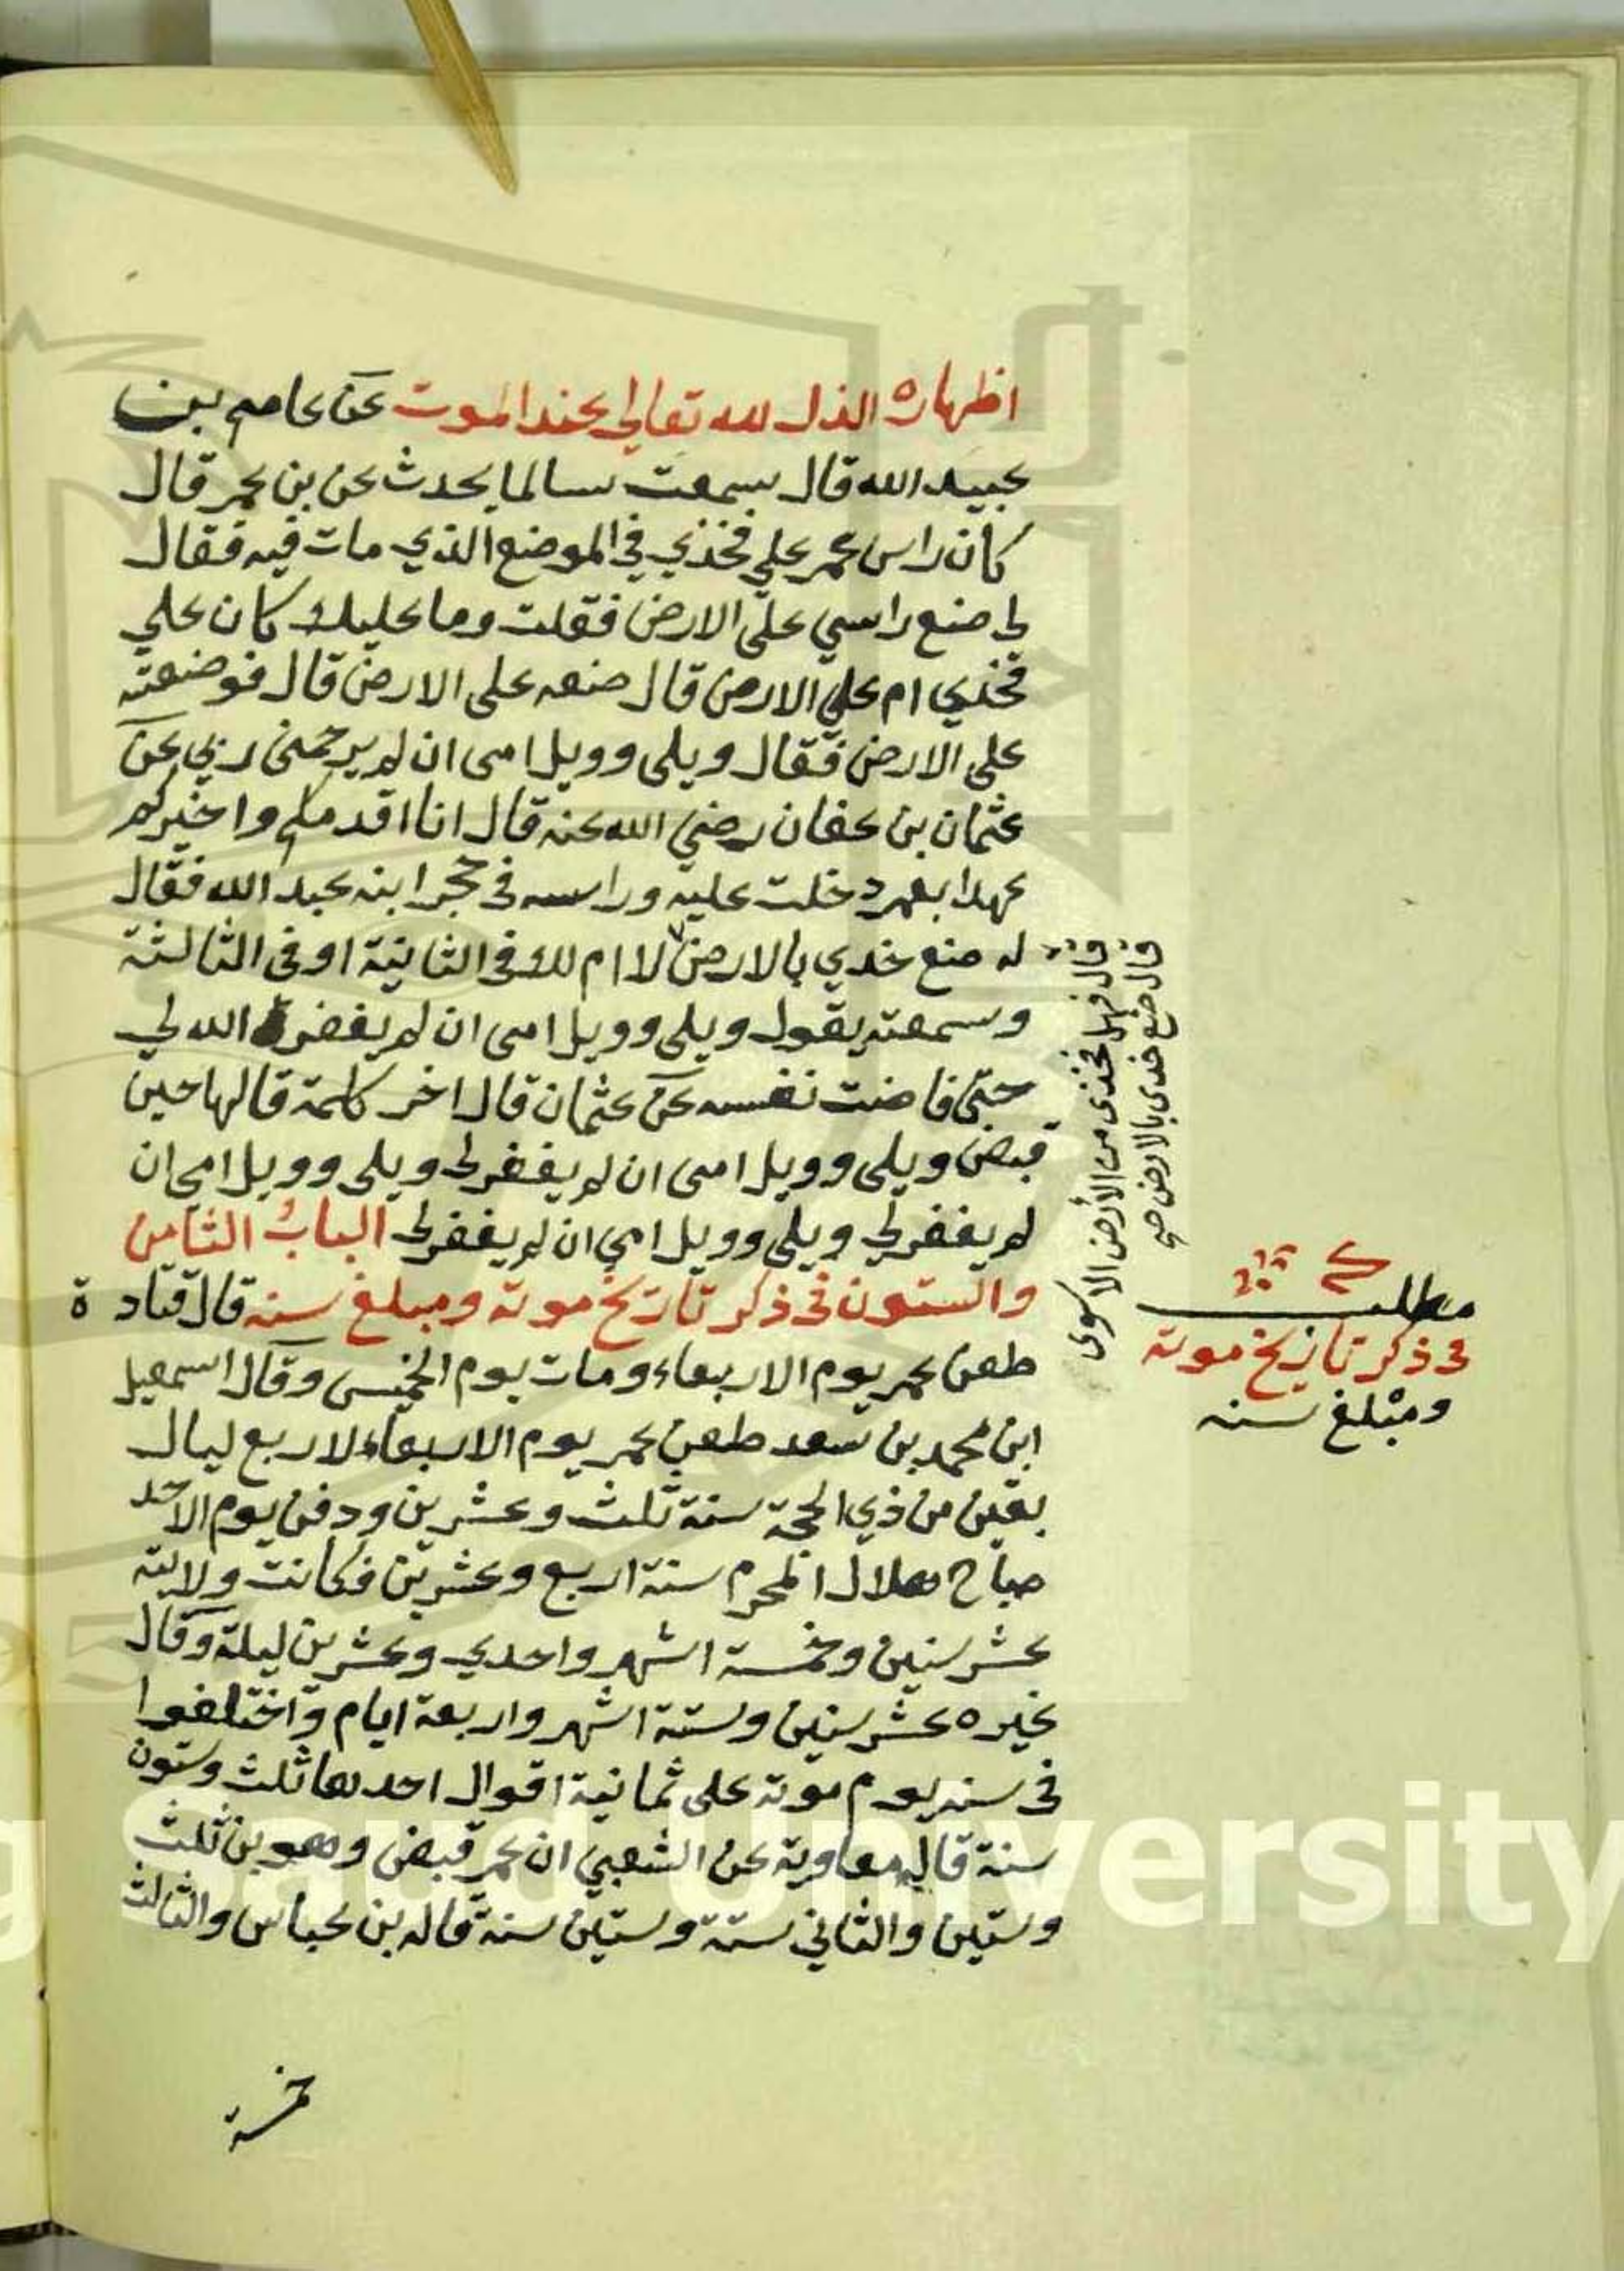 اظهاره الذل لله تعالى عند الموت عن عاصم بن
عبيد الله قال سمعت سالما يحدث عن بن عمر قال
كان راس عمر علي فخذي في الموضع الذي مات فيه فقال
لي ضع راسي على الارض فقلت وما عليك كان علي
فخذي ام علي الارض قال ضعه على الارض قال فوضعته
على الارض فقال ويلى وويل امى ان لم يرحمنى ربي عن
عثمان بن عفان رضي الله عنه قال انا اقدمكم واخيركم
عهدا بعمر دخلت عليه وراسه فى حجر ابنه عبد الله فقال
له ضع خدي بالارض لا ام لك فى الثانية او فى الثالثة
وسمعته يقول ويلى وويل امى ان لم يغفر الله لي
حتى فاضت نفسه عن عثمان قال اخر كلمة قالها حين
قبض ويلى وويل امى ان لم يغفر لي ويلى وويل امي ان
لم يغفر لي ويلى وويل امي ان لم يغفر لي الباب الثامن
والستون فى ذكر تاريخ موته ومبلغ سنه قال قتادة
طعن عمر يوم الاربعاء ومات يوم الخميس وقال اسمعيل
ابن محمد بن سعد طعن عمر يوم الاربعاء لاربع ليال
بقين من ذي الحجة سنة ثلث وعشرين ودفن يوم الاحد
صباح هلال المحرم سنة اربع وعشرين فكانت ولايته
عشر سنين وخمسة اشهر واحدي وعشرين ليلة وقال
غيره عشر سنين وستة اشهر واربعة ايام واختلفوا
فى سنه يوم موته على ثمانية اقوال احدها ثلث وستون
سنة قاله معاوية عن الشعبي ان عمر قبض وهو بن ثلث
وستين والثاني ستة وستين سنة قاله بن عباس والثالث
خمسة
قال فهل فخذى من الأرض الا سوى
قال ضع خدى بالارض
مطلب
فى ذكر تاريخ موته
ومبلغ سنه
Saud University